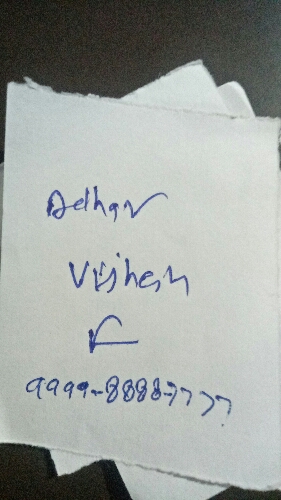 Adhar
Vishesh
F
9999-8888-7777